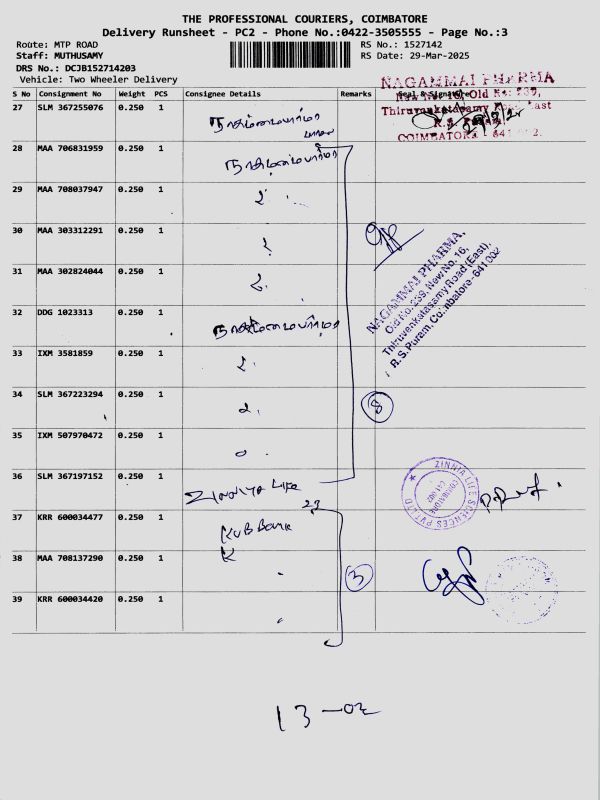 THE PROFESSIONAL COURIERS, COIMBATORE
Delivery Runsheet - PC2 - Phone No.:0422-3505555 - Page No.:3
Route: MTP ROAD
Staff: MUTHUSAMY
DRS No.: DCJB152714203
Vehicle: Two Wheeler Delivery
RS No.: 1527142
RS Date: 29-Mar-2025
S No Consignment No Weight PCS Consignee Details Remarks Seal & Signature
NAGAMMAI PHARMA
27 SLM 367255076 0.250 1
Thiruvenkatasamy Road East
COIMBATORE - 641 002.
28 MAA 706831959 0.250 1
29 MAA 708037947 0.250 1
30 MAA 303312291 0.250 1
31 MAA 302824044 0.250 1
NAGAMMAI PHARMA,
Old No.239, New No. 16,
Thiruvenkatasamy Road (East),
R.S.Puram, Coimbatore - 641 002
32 DDG 1023313 0.250 1
33 IXM 3581859 0.250 1
34 SLM 367223294 0.250 1 8
35 IXM 507970472 0.250 1
36 SLM 367197152 0.250 1
ZINNIA LIFE SCIENCES PVT LTD
COIMBATORE
641 002
37 KRR 600034477 0.250 1 KVB Bank
38 MAA 708137290 0.250 1 K 3
39 KRR 600034420 0.250 1
13